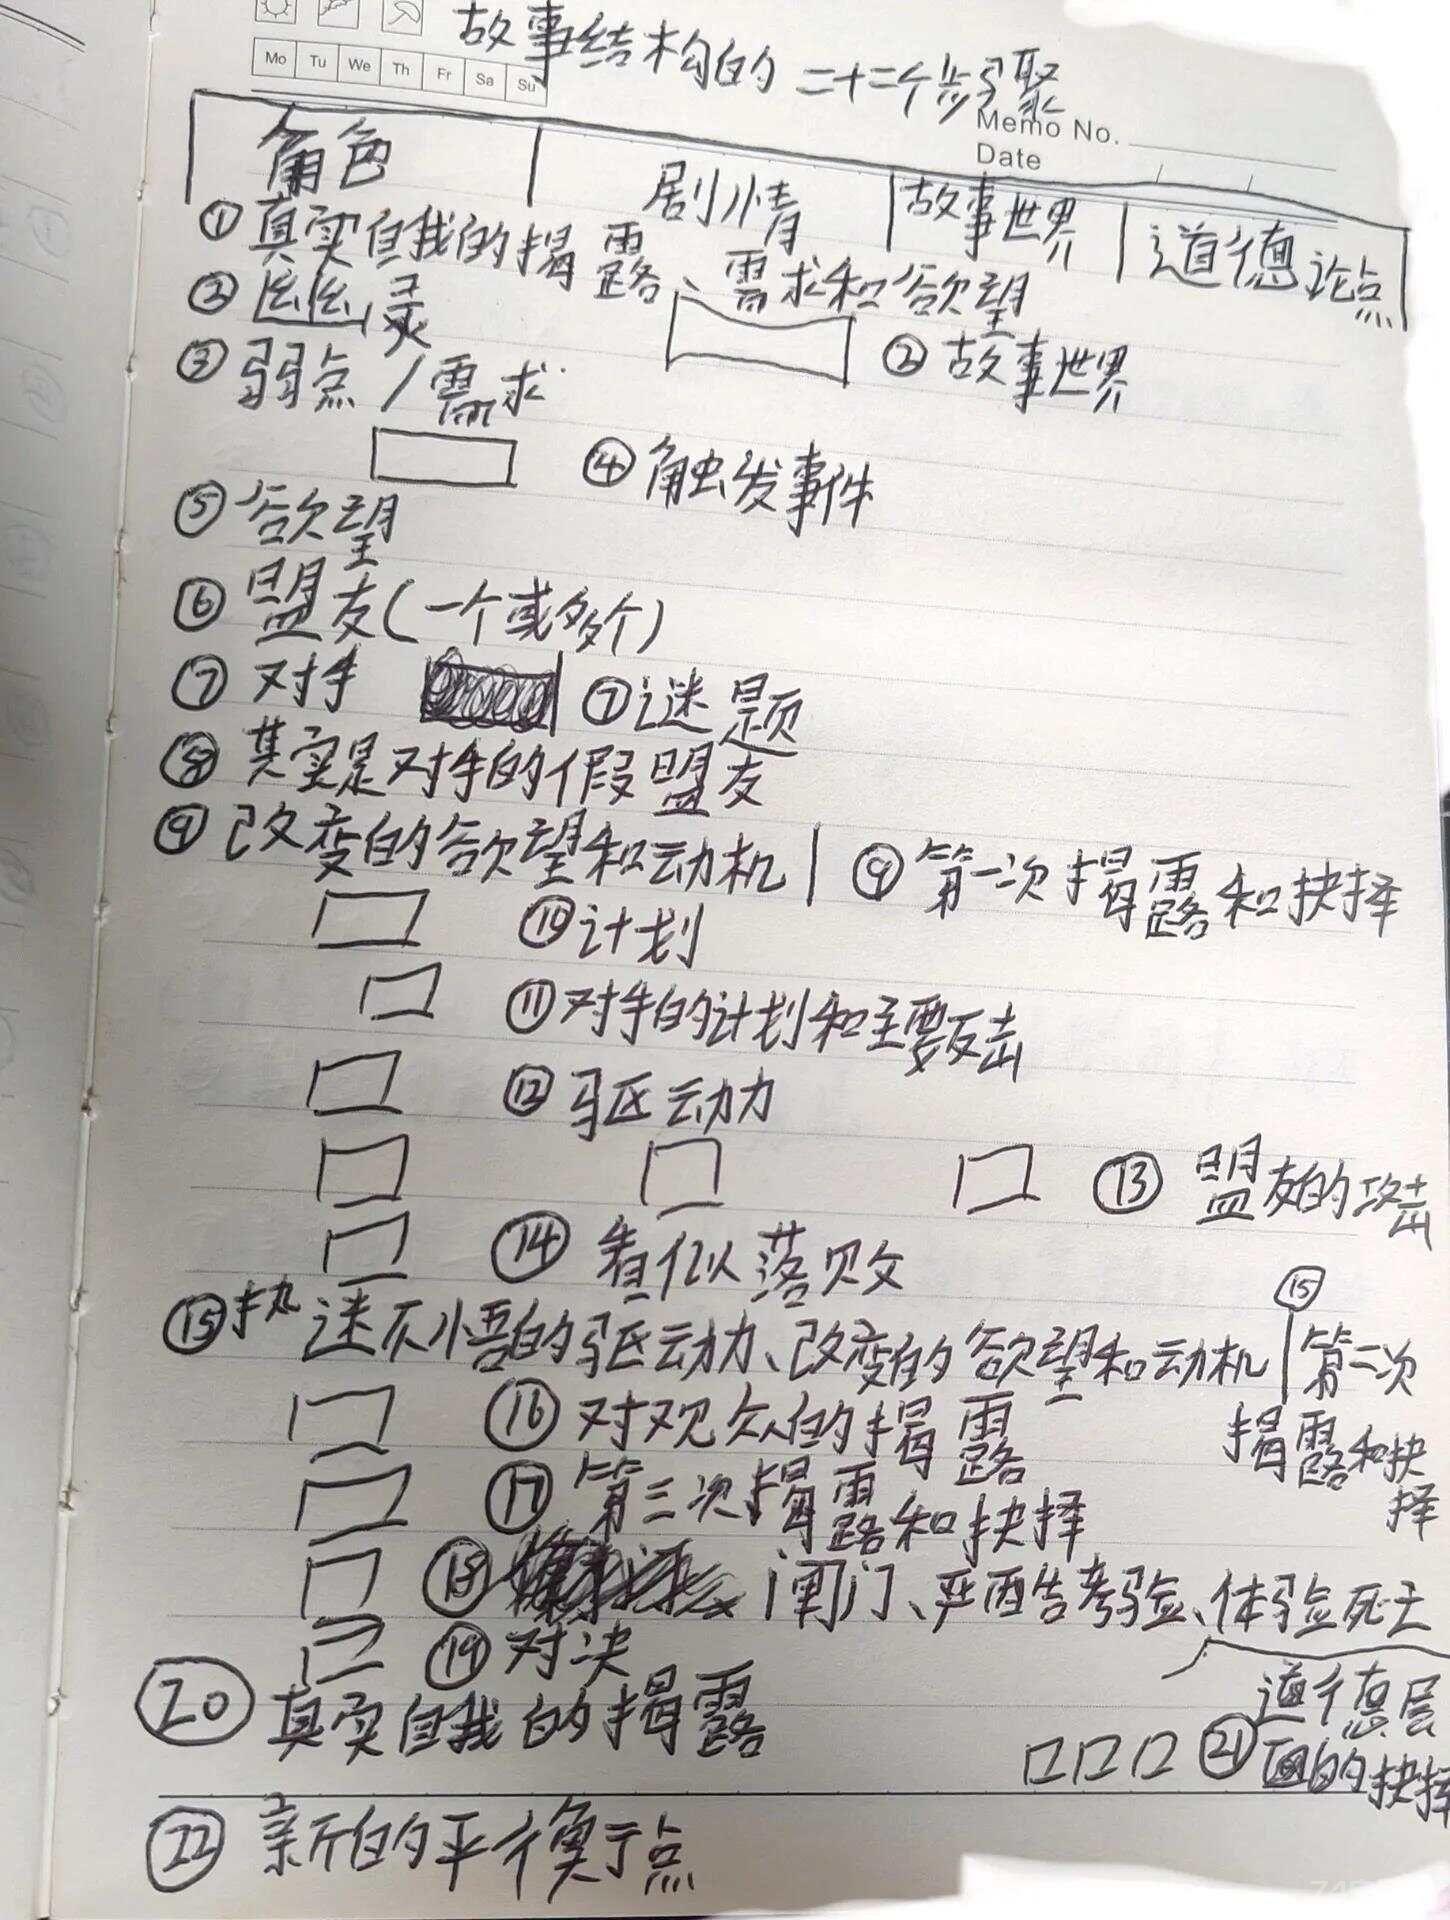 故事结构的二十二个步骤
Mo Tu We Th Fr Sa Su
Memo No.
Date
角色 剧情 故事世界 道德论点
①真实自我的揭露、需求和欲望
②幽灵 ②故事世界
③弱点/需求
④触发事件
⑤欲望
⑥盟友(一个或多个)
⑦对手 ⑦谜题
⑧其实是对手的假盟友
⑨改变的欲望和动机 ⑨第一次揭露和抉择
⑩计划
⑪对手的计划和主要反击
⑫驱动力
⑬盟友的攻击
⑭看似落败
⑮执迷不悟的驱动力、改变的欲望和动机 ⑮第二次揭露和抉择
⑯对观众的揭露
⑰第三次揭露和抉择
⑱闸门、严酷考验、体验死亡
⑲对决
⑳真实自我的揭露
㉑道德层面的抉择
㉒新的平衡点